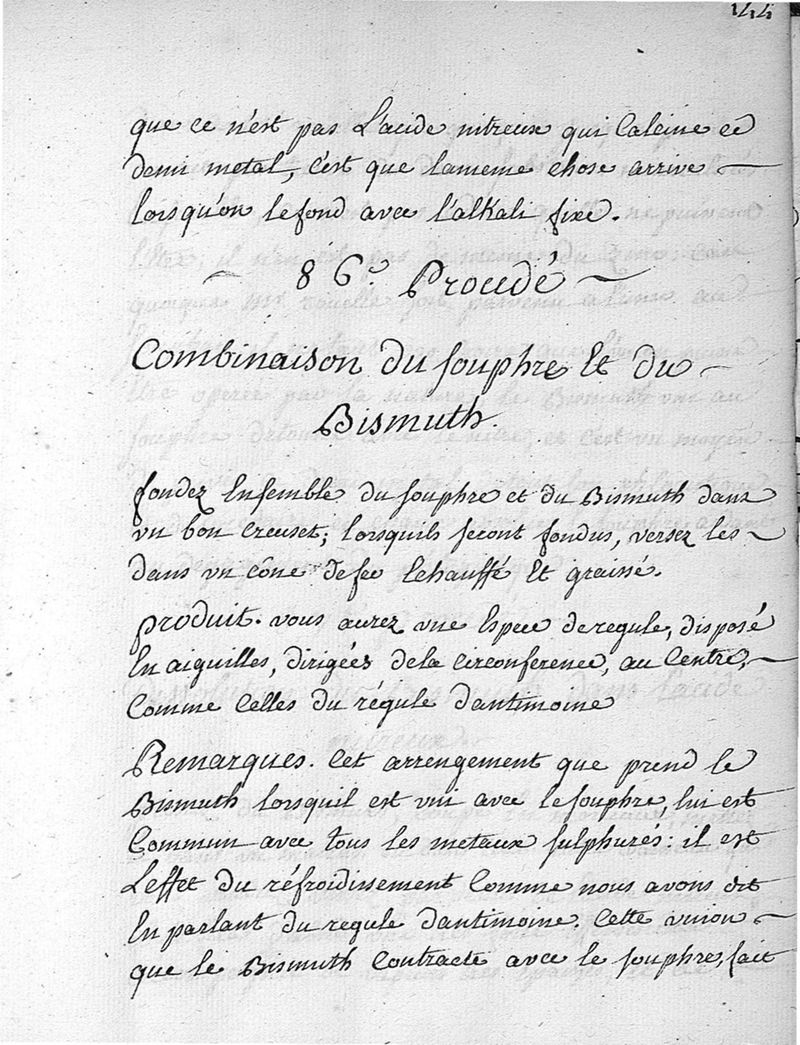 144
que ce n'est pas L'acide nitreux qui Calcine ce
demi metal, C'est que lameme chose arrive
lorsqu'on lefond avec l'alkali fixe.
86e Procedé
Combinaison du souphre et du
Bismuth.
fondez Ensemble du souphre et du Bismuth dans
un bon Creuset; lorsquils seront fondus, versez les
dans un cône defer Echauffé Et graissé.
produit. vous aurez une Espece deregule, disposé
En aiguilles, dirigées dela circonference, au Centre,
Comme Celles du régule dantimoine
Remarques. Cet arrengement que prend le
Bismuth lorsquil est uni avec lesouphre, lui est
Commun avec tous les metaux sulphurés: il est
L'effet du réfroidissement Comme nous avons dit
En parlant du regule dantimoine. Cette union
que le Bismuth Contracte avec le souphre, fait